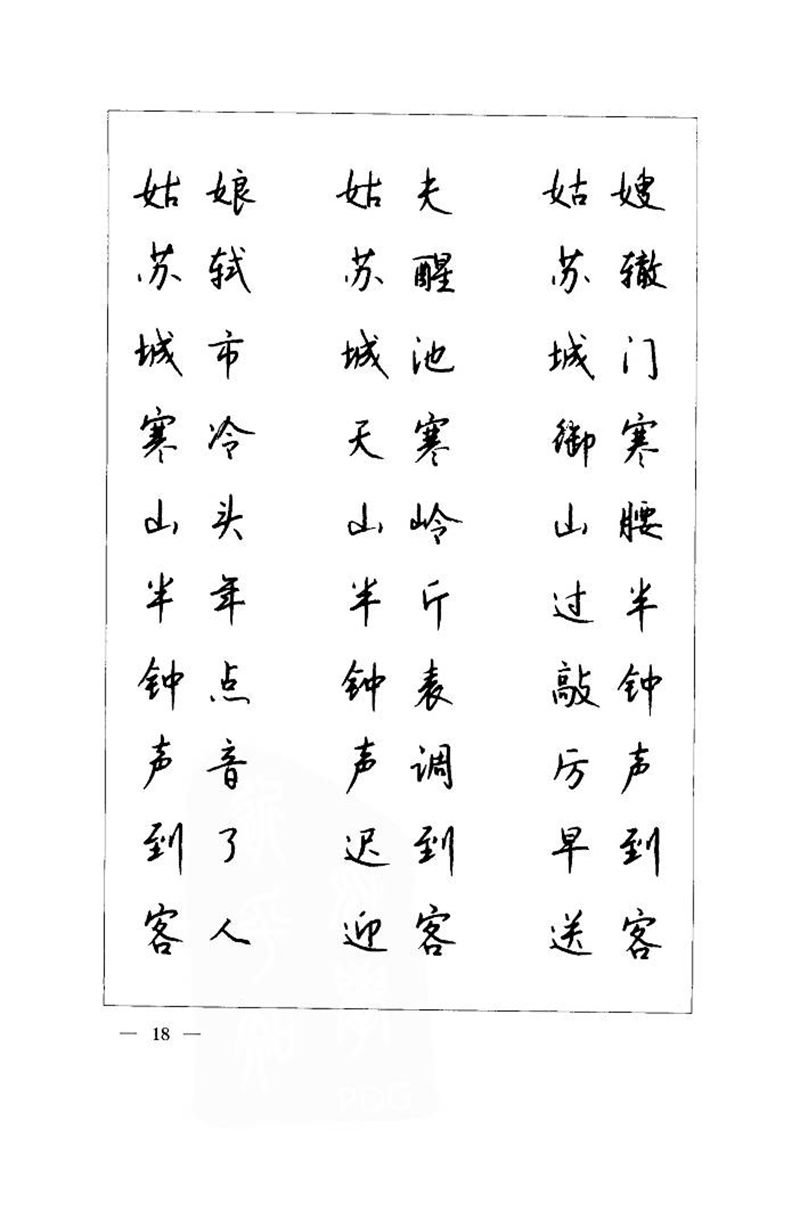 姑娘 姑夫 姑嫂
苏轼 苏醒 苏辙
城市 城池 城门
寒冷 天寒 御寒
山头 山岭 山腰
半年 半斤 过半
钟点 钟表 敲钟
声音 声调 厉声
到了 迟到 早到
客人 迎客 送客
— 18 —